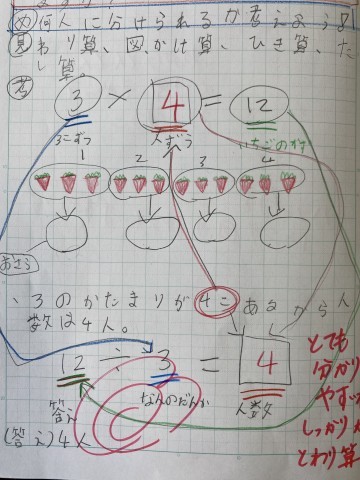 め 何人に分けられるか考えよう!
見 わり算、図、かけ算、ひき算、た
し算。
考
3 × 4 = 12
3こずつ 人ずう いちごのかず
1 2 3 4
おさら
、3のかたまりが4こあるから人
数は4人。
12 ÷ 3 = 4
答え なんのだんか 人数
(答え)4人
とても
分かり
やすい
しっかり
とわり算